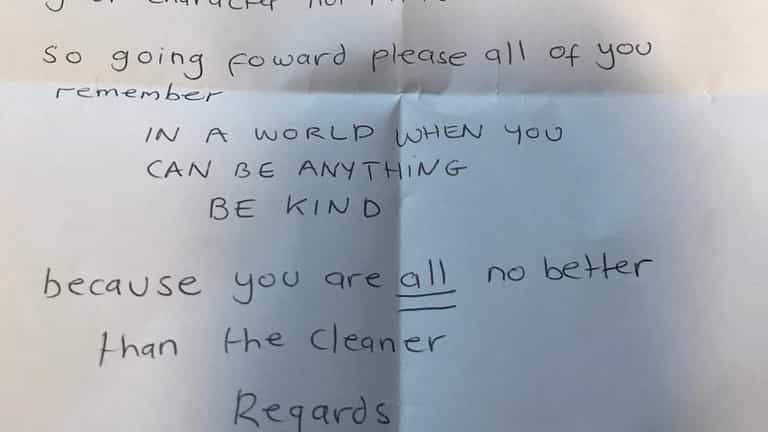 character not
so going foward please all of you
remember
IN A WORLD WHEN YOU
CAN BE ANYTHING
BE KIND
because you are all no better
than the cleaner
Regards